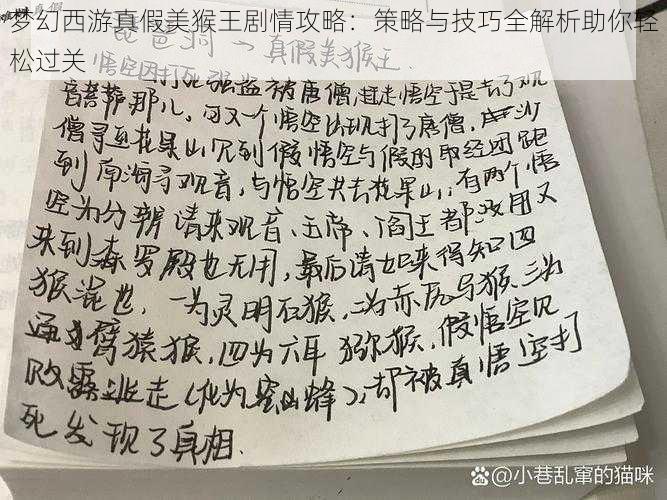 梦幻西游真假美猴王剧情攻略：策略与技巧全解析助你轻
松过关
琵琶洞 → 真假美猴王
悟空因打死强盗被唐僧赶走悟空于是去了观
音菩萨那儿，可又一个悟空出现打了唐僧，沙
僧寻至花果山见到假悟空与假的取经团跑
到南海寻观音，与悟空共去花果山，有两个悟
空为分辨请来观音、玉帝、阎王都没用又
来到森罗殿也无用，最后请如来得知四
猴混世，一为灵明石猴，二为赤尻马猴三为
通臂猿猴，四为六耳猕猴，假悟空见
败露逃走（化为蜜蜂），却被真悟空打
死发现了真相.
@小巷乱窜的猫咪